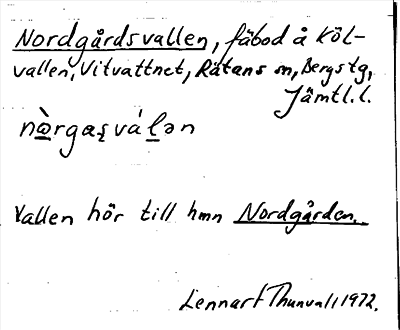 Nordgårdsvallen, fäbod å Köl-
vallen, Vitvattnet, Rätans sn, Bergs tg,
Jämtl. l.
nàrgaʂváḷən
Vallen hör till hmn Nordgården.
Lennart Thunvall 1972.